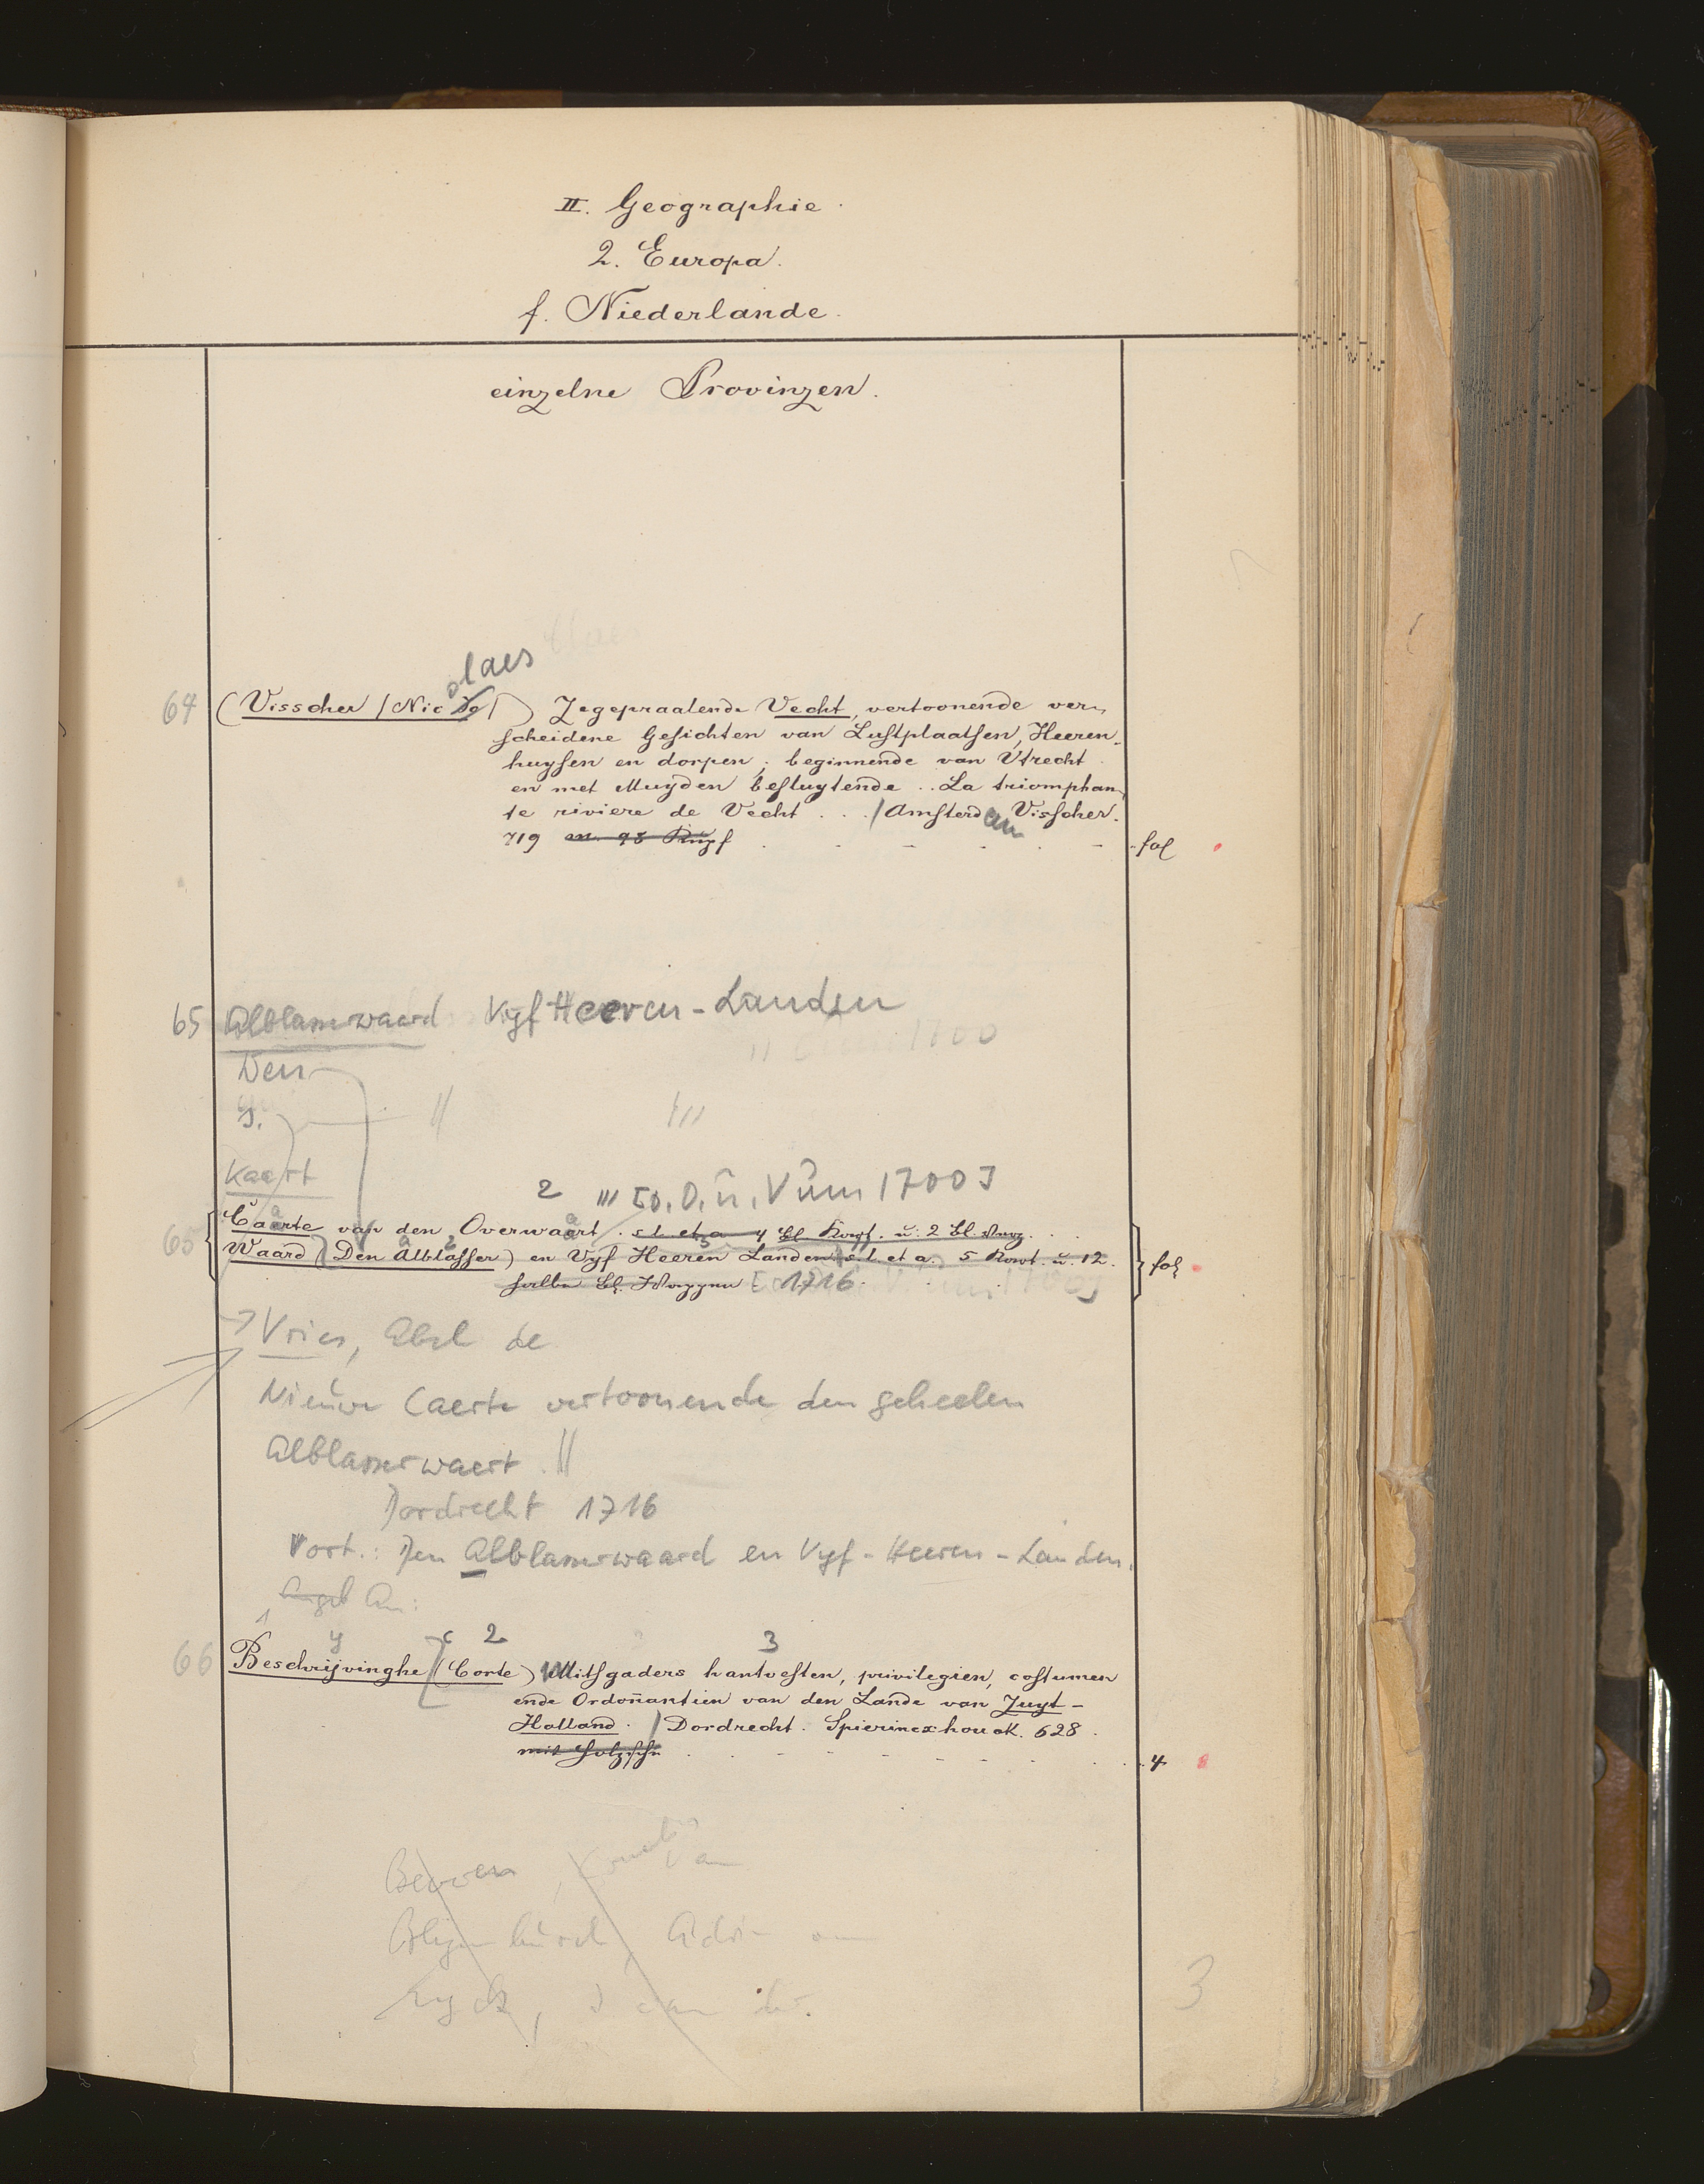 II. Geographie.
2. Europa.
f. Niederlande.
einzelne Provinzen.
olaes
64 (Visscher / Nic de /) Zegepraalende Vecht, vertoonende ver-
scheidene Gesichten van Lustplaatsen, Heeren-
huysen en dorpen; beginnende van Utrecht
en met Muyden besluytende .. La triomphan-
te riviere de Vecht ... / Amsterdam Visscher.
719 m. 98 Kupf fol
65 Alblasserwaard Vyf Heeren-Landen
Den
Kaart
2 /// [o. O. u. V um 1700]
65 Caerte van den Overwaert. s. l. et a 4 Bl. Kupf. u. 2 Bl.
Waard (Den Alblasser) en Vyf Heeren Landen s. l. et a. 5 u. 12. fol
halbe Bl. 1716
→ Vries, Abel de
Nieuwe Caerte vertoonende den geheelen
Alblasserwaert. //
Dordrecht 1716
Vort.: Den Alblasserwaard en Vyf-Heeren-Landen.
1 y c 2 3
66 Beschrijvinghe (Corte) Mitsgaders hantvesten, privilegien, costumen
ende Ordonantien van den Lande van Zuyt-
Holland. / Dordrecht. Spierincxhouck. 628.
mit Holzschn 4
3